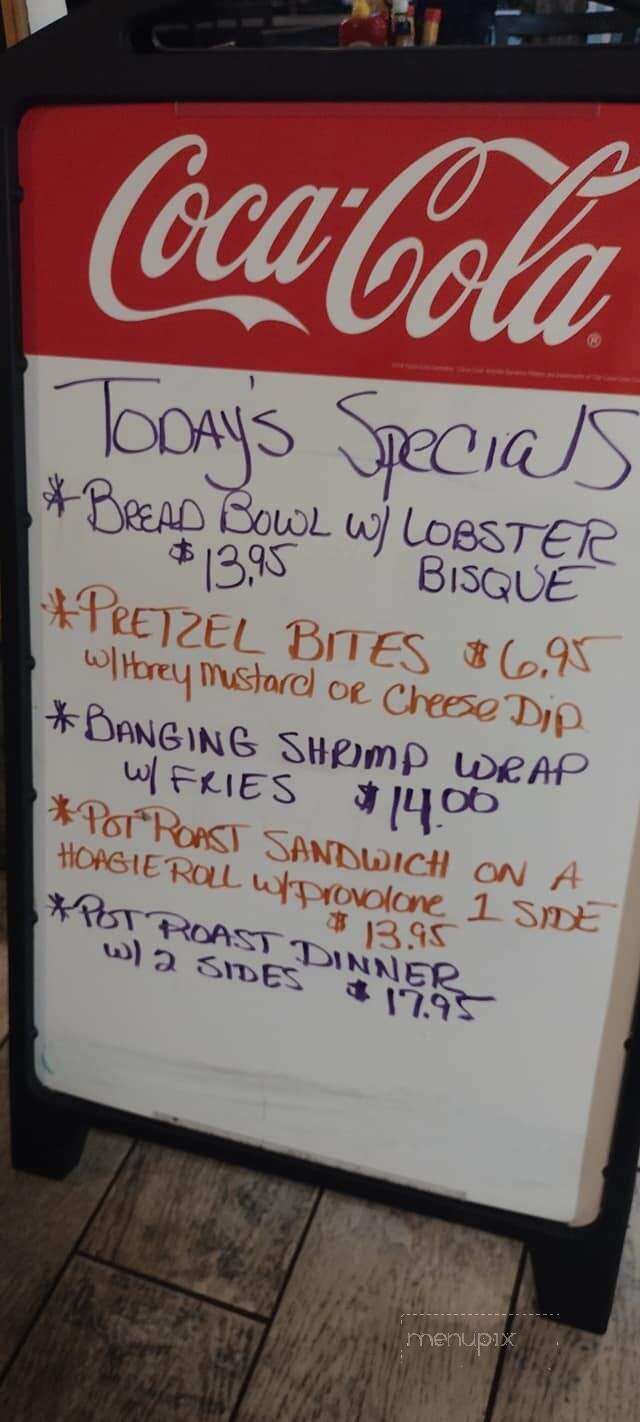 Coca-Cola
®
TODAY'S SPECIALS
* BREAD BOWL W/ LOBSTER
$13.95 BISQUE
* PRETZEL BITES $6.95
w/ Honey Mustard OR Cheese Dip
* BANGING SHRIMP WRAP
W/ FRIES $14.00
* POT ROAST SANDWICH ON A
HOAGIE ROLL w/ Provolone 1 SIDE
$13.95
* POT ROAST DINNER
w/ 2 SIDES $17.95
menupix